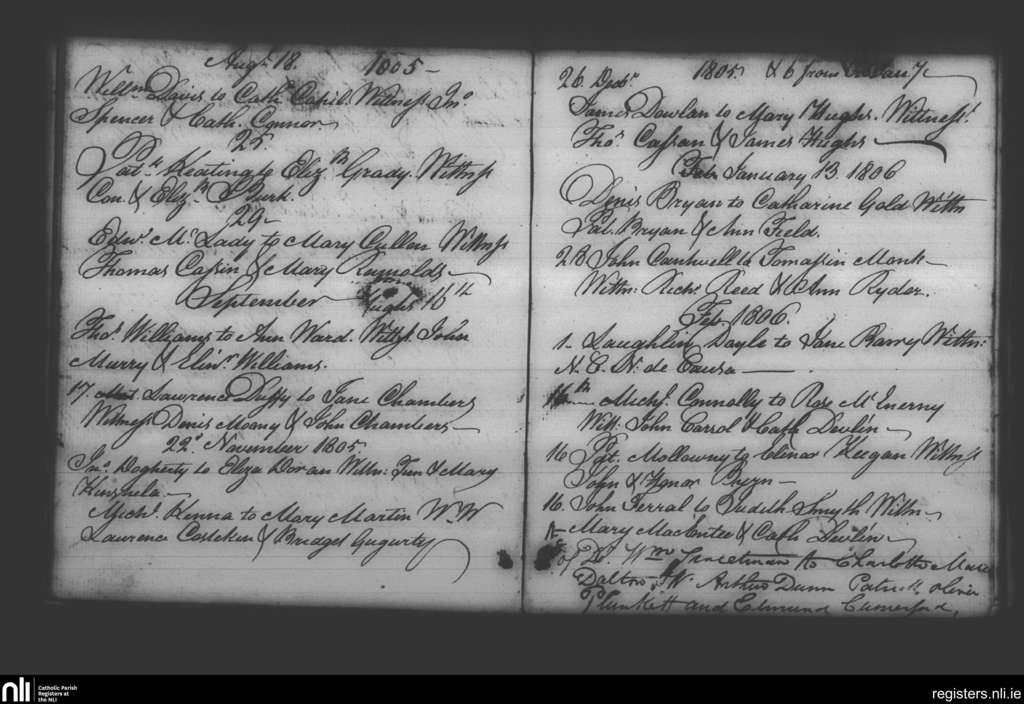 Augt. 18. 1805 –
Willm. Davis to Cathe. Witness Jno.
Spencer & Cath. Connor.
25.
Patk. Keating to Elizth. Grady. Witness
Con. & Elizth. Burk.
29 –
Edwd. Mc. Lady to Mary Cullen Witness
Thomas Cassin & Mary Rumolds –
September 16th
Thos. Williams to Ann Ward. John
Murry & Elinr. Williams.
17. Lawrence Duffy to Jane Chambers
Witness Denis Moony & John Chambers –
22d. November 1805.
Jno. Dogherty to Eliza Doran Wittn: & Mary
Kinshela –
Michl. Kenna to Mary Martin
Lawrence & Bridget Gugurty
26. 1805. & 6 from
James Dowlan to Mary Hughs. Wittness.
Thos. Cassan & James Hughs –
January 13. 1806
Denis Bryan to Catharine Gold Wittn
Pat. Bryan & Ann Field.
28 John Cantwell to Tomassin Monk –
Wittn: Richd. Reed & Ann Ryder.
Feb. 1806.
1. Laughlin Doyle to Jane Wittn:
N. E. N. de Causa –
Michl. Connolly to Rose Mc. Enerny
Witt: John Carrol & Cath Devlin –
16 Pat. Mollowny to Elinor Keegan Wittness
John & Honor –
16. John Ferral to Judith Smyth Wittn –
Mary MacEntee & Cath Devlin –
Wm. to Charlotte Maria
Dalton, W. Arthur Dunn Patrick Oliver
Plunkett and Edmund Comerford,
nli
Catholic Parish
Registers at
the NLI
registers.nli.ie